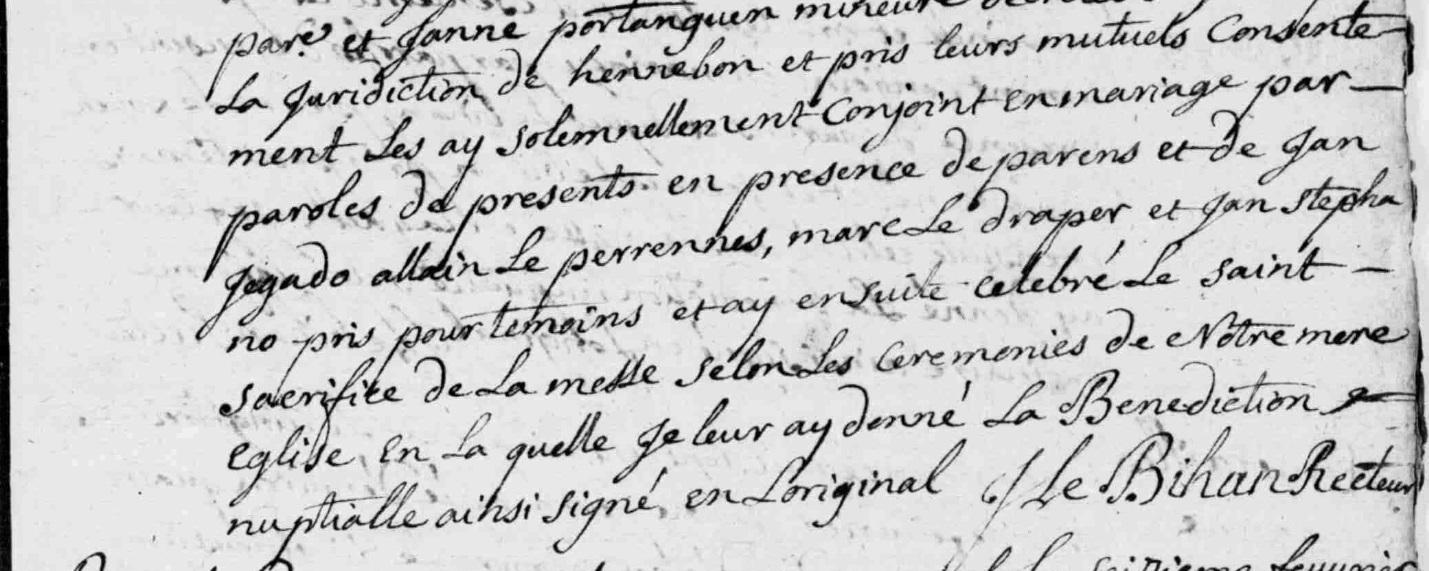 par.e et Janne portanguen mineure
La Juridiction de hennebon et pris leurs mutuels Consente
ment Les ay solemnellement Conjoint en mariage par —
paroles de presents en presence de parens et de Jan
Jegado allain Le perrennes, marc Le draper et Jan stepha
no pris pour temoins et ay ensuite celebré Le saint —
sacrifice de La messe selon Les Ceremonies de Notre mere
eglise en La quelle Je leur ay donné La Benediction
nuptialle ainsi signé en Loriginal J Le Bihan Recteur